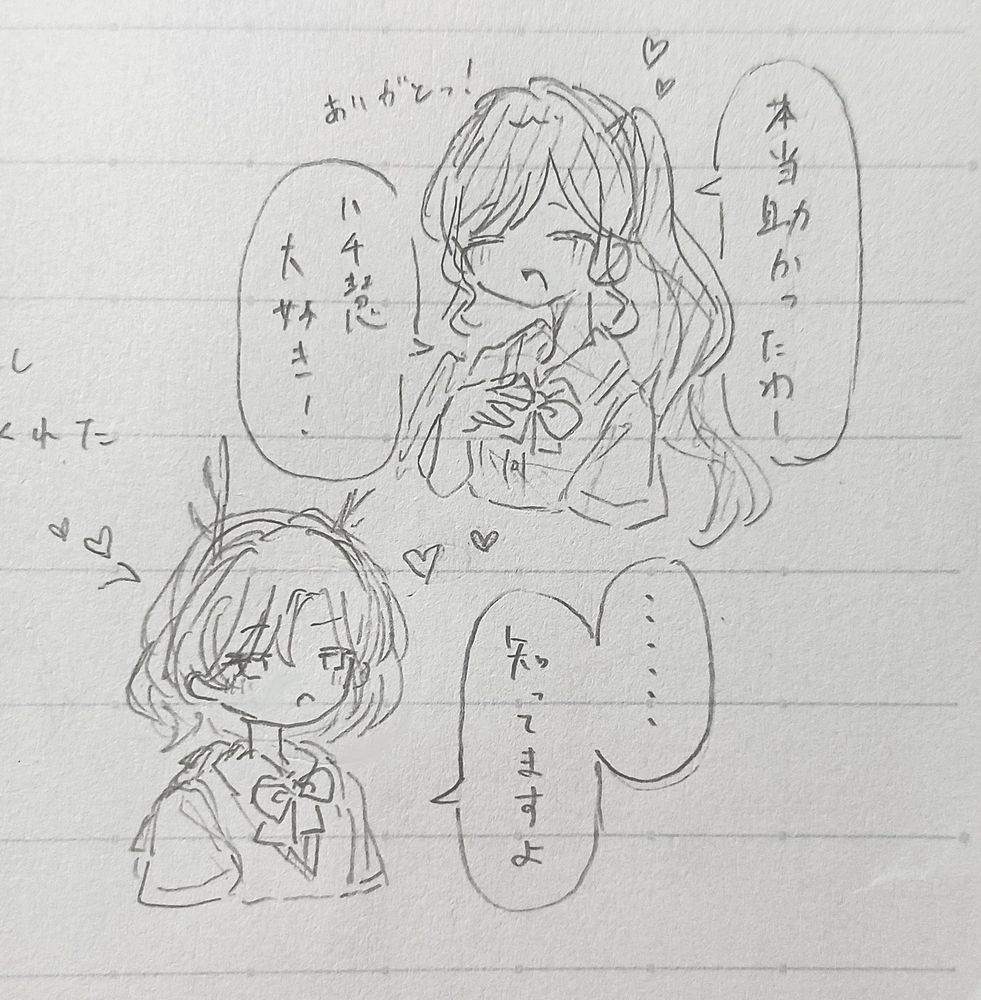 本当助かったわー
ありがとっ！
ハチ
大好き！
し
くれた
・・・・・・
知ってますよ